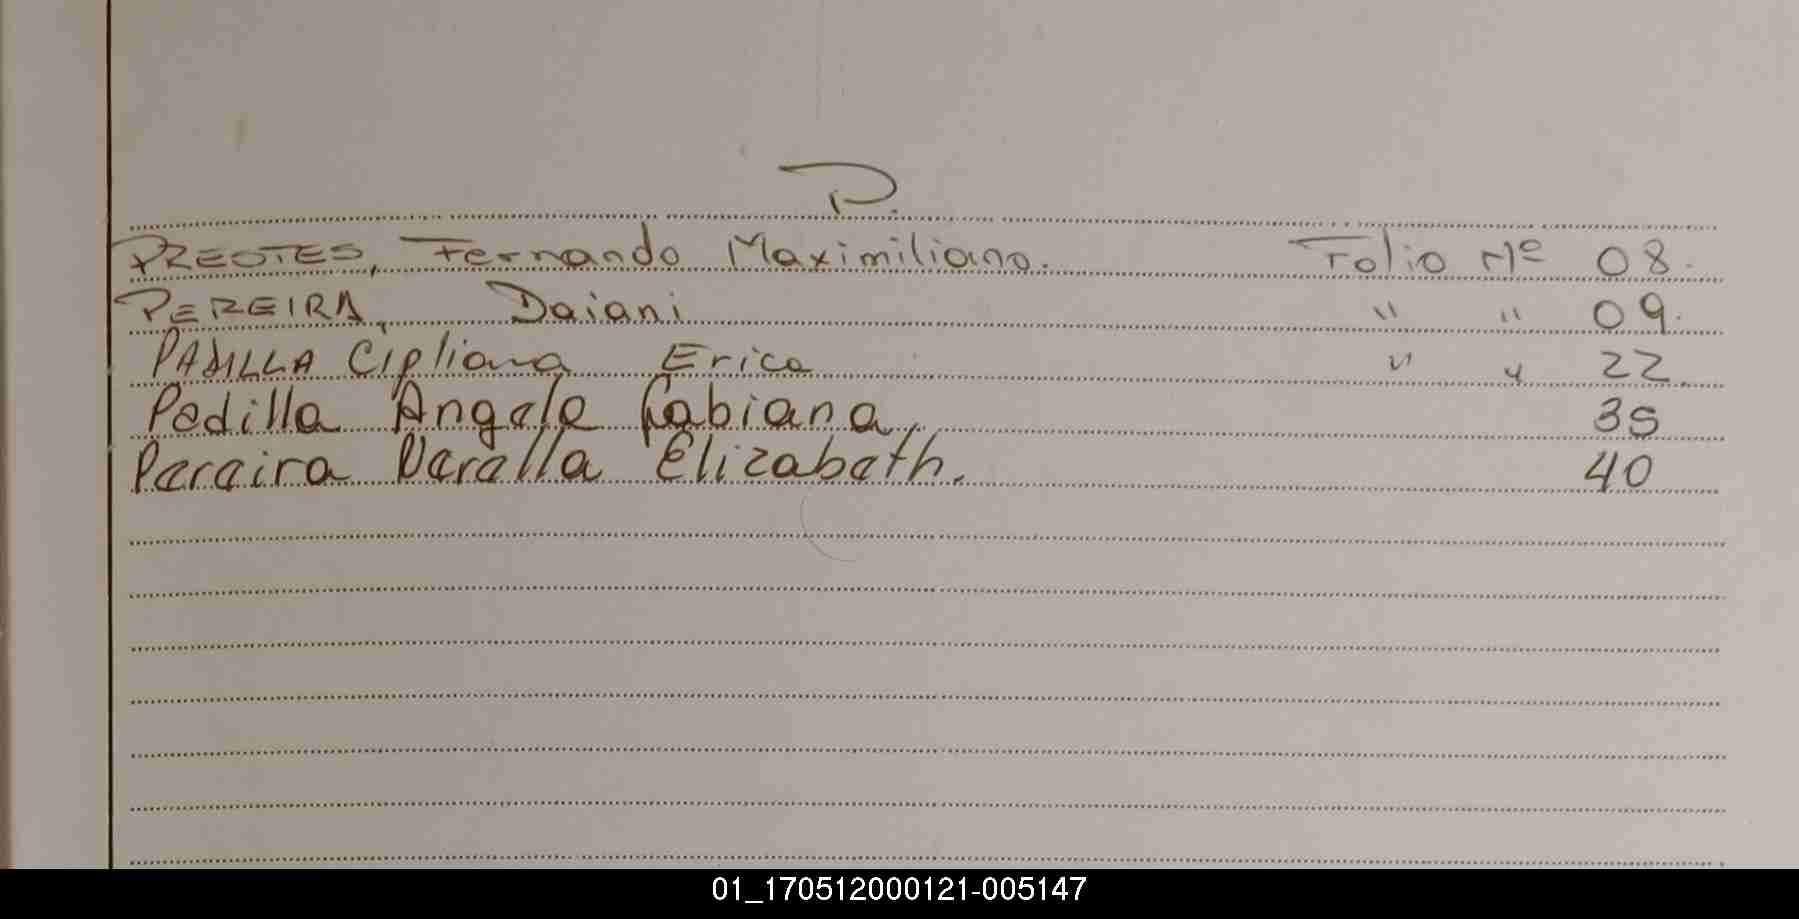 P.
PREOTES, Fernando Maximiliano. Folio Nº 08.
PEREIRA, Daiani " " 09.
PADILLA Cipliana Erica " " 22.
Padilla Angela Fabiana 35
Pereira Daralla Elizabeth. 40
01_170512000121-005147